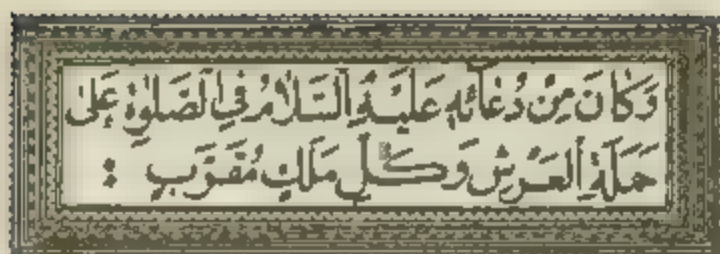 وَكَانَ مِنْ دُعَائِهِ عَلَيْهِ السَّلَامُ فِي الصَّلٰوةِ عَلٰى
حَمَلَةِ الْعَرْشِ وَكُلِّ مَلَكٍ مُقَرَّبٍ :